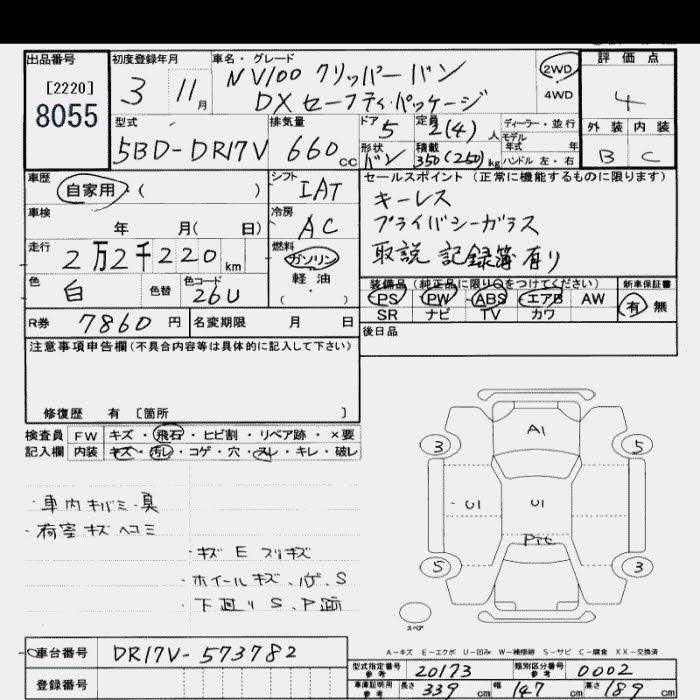 出品番号 初度登録年月 車名・グレード 評価点
[2220] 3 11月 NV100 クリッパーバン 2WD
8055 DXセーフティ・パッケージ 4WD 4
型式 排気量 ドア 5 定員 2(4)人 ディーラー・並行 外装 内装
5BD-DR17V 660cc 形状 バン 積載 350(250)kg モデル年式 年 ハンドル 左・右 B C
車歴 自家用・( ) シフト IAT セールスポイント(正常に機能するものに限ります)
車検 年 月( 日) 冷房 AC キーレス
プライバシーガラス
走行 2万2千220km 燃料 ガソリン 取説 記録簿有り
軽油
色 白 色替 色コード 26U ( ・ ) 装備品(純正品に限り○をつけてください) 新車保証書
PS PW ABS エアB AW 有 無
R券 7860円 名変期限 月 日 SR ナビ TV カワ
注意事項申告欄(不具合内容等は具体的に記入して下さい) 後日品
修復歴 有 [箇所 ]
検査員 FW キズ・飛石・ヒビ割・リペア跡・×要
記入欄 内装 キズ・汚レ・コゲ・穴・スレ・キレ・破レ
A1
3 5
・車内キバミ・臭 U1 U1
・荷室キズヘコミ
・キズEスリキズ
・ホイールキズ、ハゲ、S 5 3
・下廻りS、P跡
スペア
A-キズ E-エクボ U-凹み W-補修跡 S-サビ C-腐食 XX-交換済
車台番号 DR17V-573782 型式指定番号 参考 20173 類別区分番号 参考 0002
登録番号 車庫証明用 参考 長さ 339cm 幅 147cm 高さ 189cm